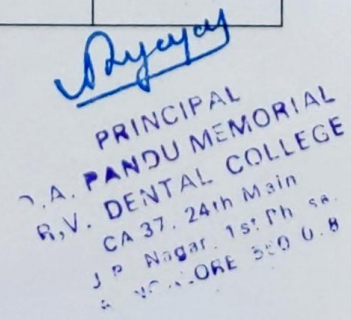 PRINCIPAL
D.A. PANDU MEMORIAL
R.V. DENTAL COLLEGE
CA 37, 24th Main
J P Nagar, 1st Ph